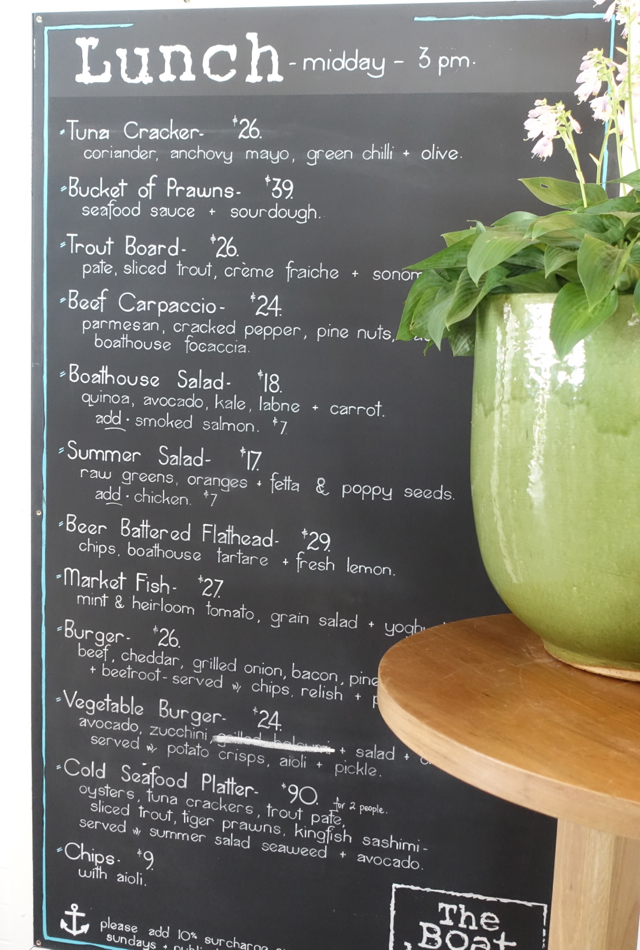 Lunch - midday - 3 pm.
Tuna Cracker- $26.
coriander, anchovy mayo, green chilli + olive.
Bucket of Prawns- $39.
seafood sauce + sourdough.
Trout Board- $26.
pate, sliced trout, crème fraiche +
Beef Carpaccio- $24.
parmesan, cracked pepper, pine nuts,
boathouse focaccia.
Boathouse Salad- $18.
quinoa, avocado, kale, labne + carrot.
add · smoked salmon. $7
Summer Salad- $17.
raw greens, oranges + fetta & poppy seeds.
add · chicken. $7
Beer Battered Flathead- $29.
chips, boathouse tartare + fresh lemon.
Market Fish- $27.
mint & heirloom tomato, grain salad +
Burger- $26.
beef, cheddar, grilled onion, bacon,
+ beetroot- served w chips, relish +
Vegetable Burger- $24.
avocado, zucchini, + salad +
served w potato crisps, aioli + pickle.
Cold Seafood Platter- $90. for 2 people.
oysters, tuna crackers, trout pate,
sliced trout, tiger prawns, kingfish sashimi-
served w summer salad seaweed + avocado.
Chips- $9.
with aioli.
please add 10% surcharge
sundays +
The